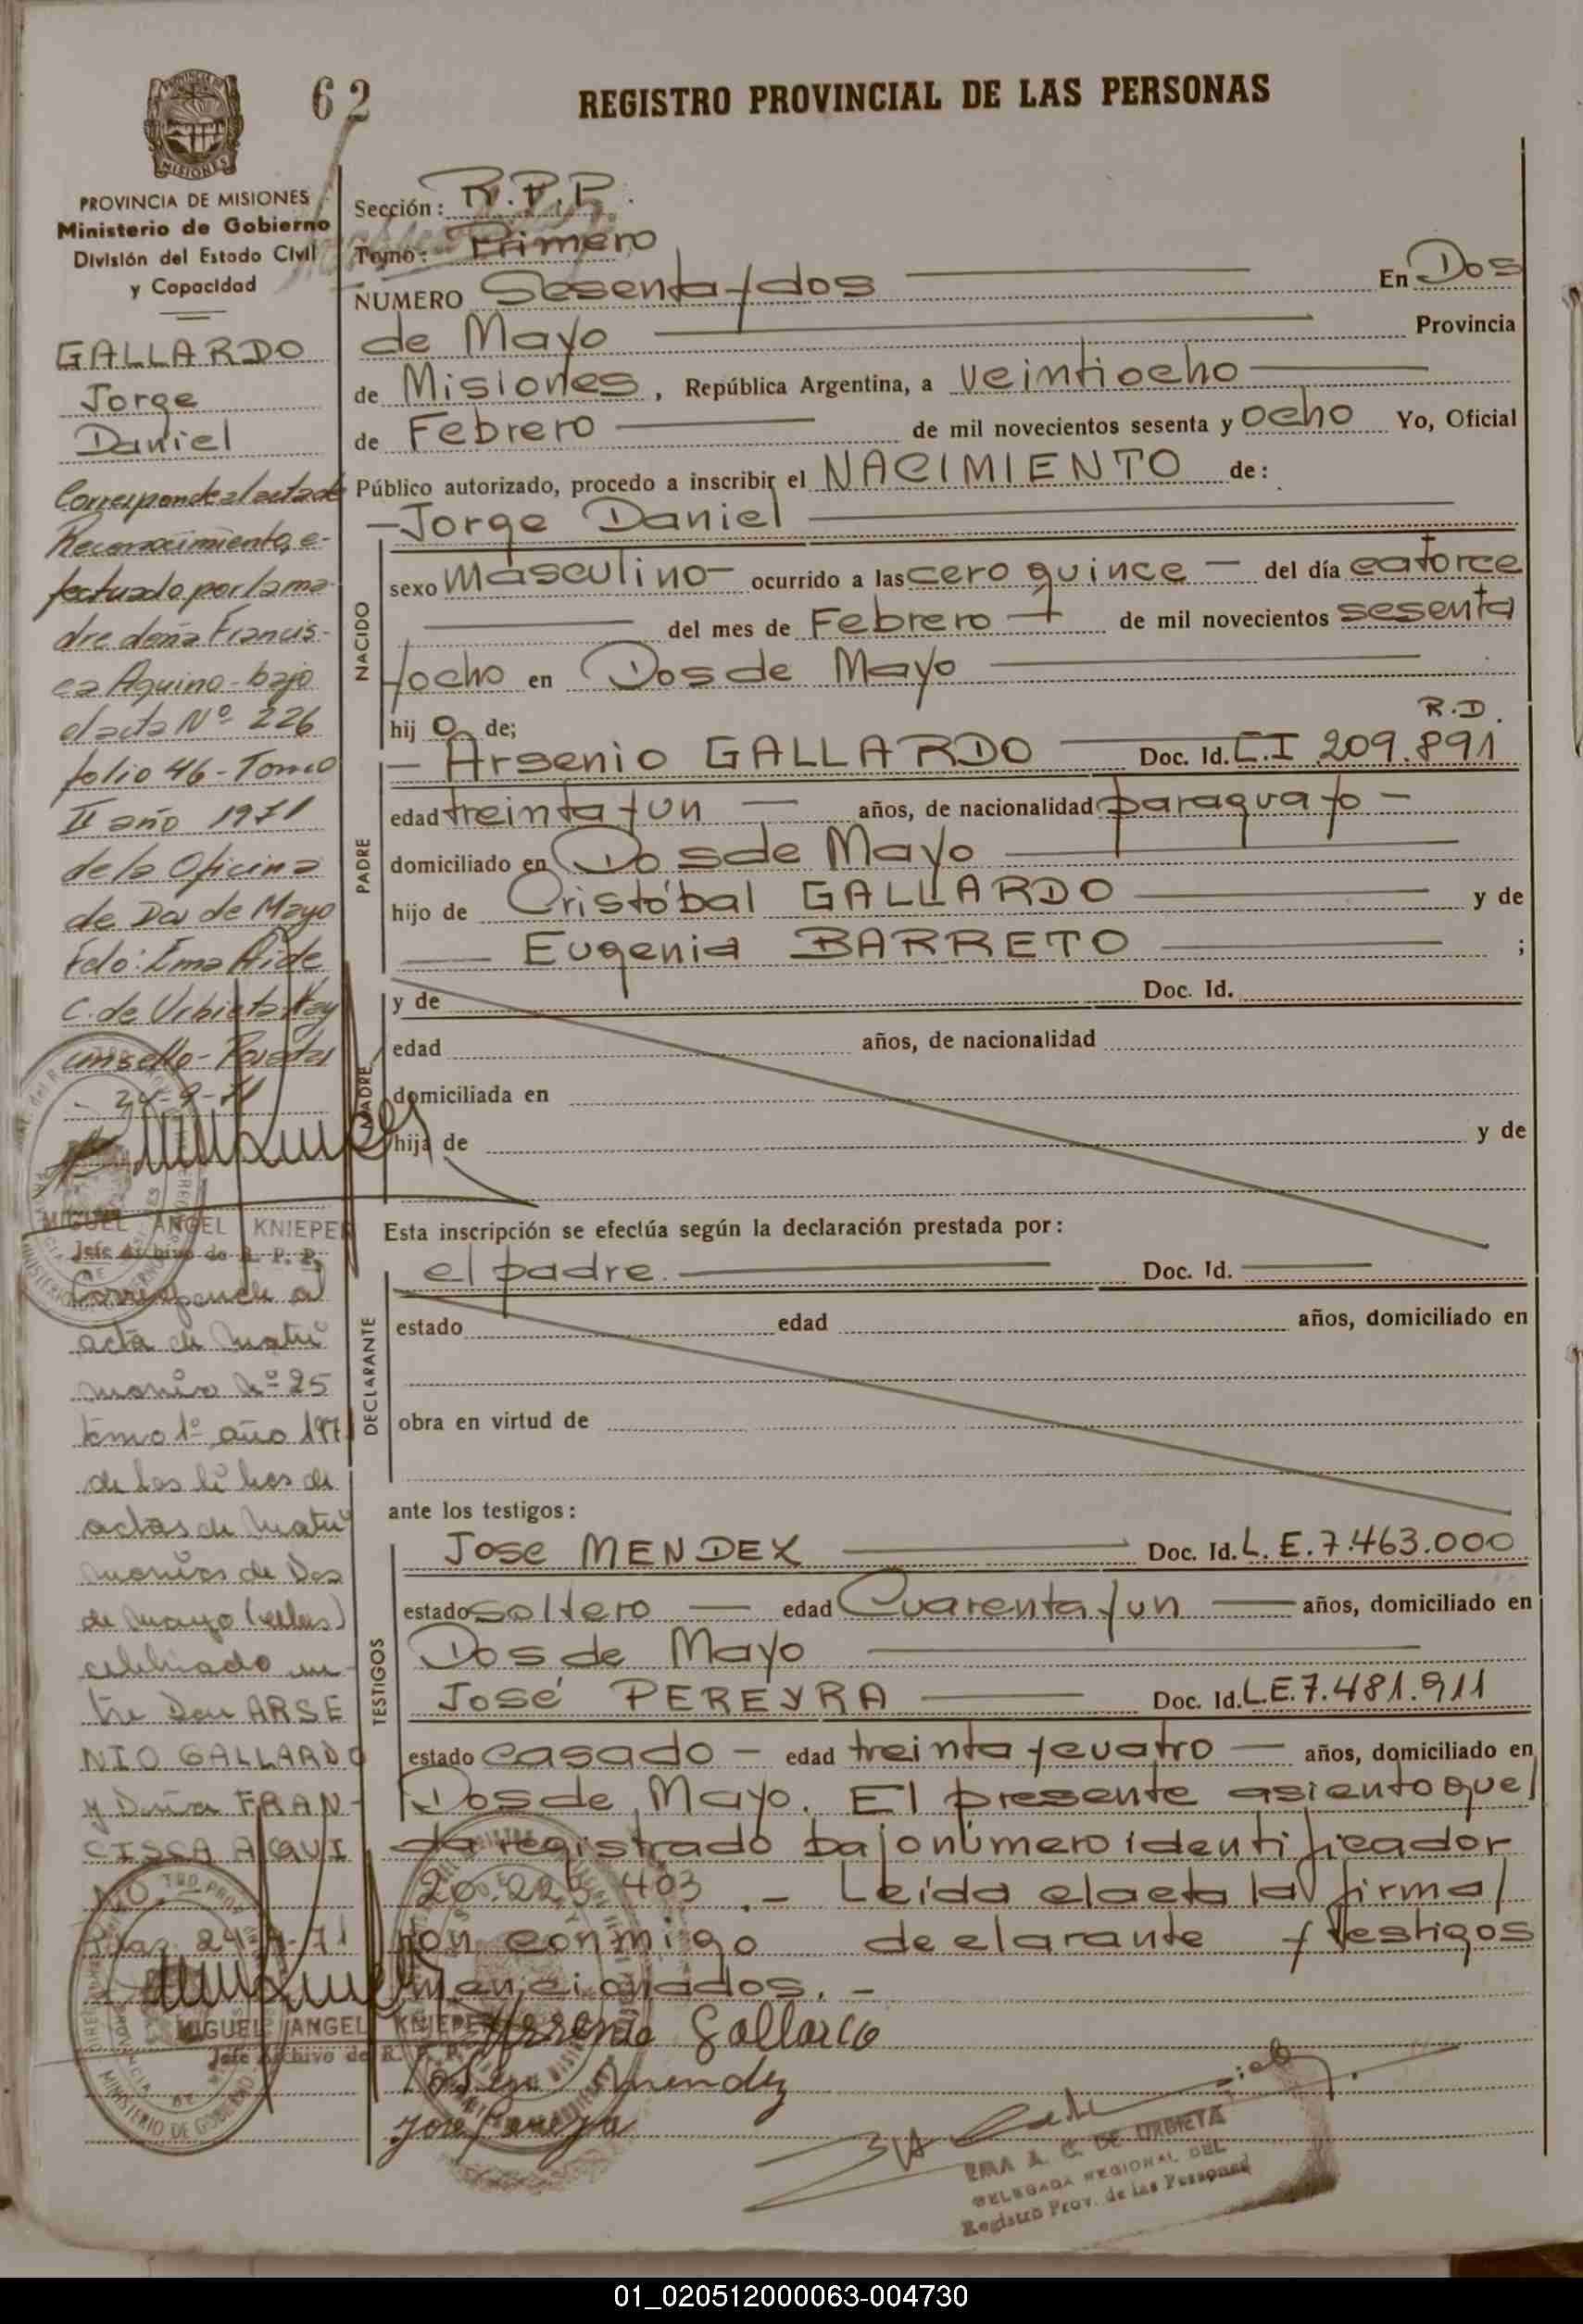 62
REGISTRO PROVINCIAL DE LAS PERSONAS
MISIONES
PROVINCIA DE MISIONES
Ministerio de Gobierno
División del Estado Civil
y Capacidad
GALLARDO
Jorge
Daniel
Corresponde al acta de
Reconocimiento, e-
fectuado por la ma-
dre doña Francis-
ca Aquino - bajo
el acta Nº 226
folio 46 - Tomo
II año 1971
de la Oficina
de Dos de Mayo
Fdo: Ema Aide
C. de Urbieta Hay
un sello - Posadas
24-9-71
MIGUEL ANGEL KNIEPER
Jefe Archivo de R. P. P.
Corresponde al
acta de Matri
monio Nº 25
tomo 1º año 1971
de los libros de
actas de Matri
monios de Dos
de Mayo
celebrado en-
tre Don ARSE
NIO GALLARDO
y Doña FRAN-
CISCA AQUI
NO.
MIGUEL ANGEL KNIEPER
Jefe Archivo de R. P. P.
Sección: R.P.P.
Tomo: Primero
NUMERO Sesenta y dos En Dos
de Mayo Provincia
de Misiones, República Argentina, a veintiocho
de Febrero de mil novecientos sesenta y ocho Yo, Oficial
Público autorizado, procedo a inscribir el NACIMIENTO de:
Jorge Daniel
NACIDO
sexo masculino ocurrido a las cero quince del día catorce
del mes de Febrero de mil novecientos sesenta
y ocho en Dos de Mayo
hij o de;
R.D.
PADRE
Arsenio GALLARDO Doc. Id. C.I 209.891
edad treinta y un años, de nacionalidad paraguayo
domiciliado en Dos de Mayo
hijo de Cristóbal GALLARDO y de
Eugenia BARRETO ;
MADRE
y de Doc. Id.
edad años, de nacionalidad
domiciliada en
hija de y de
Esta inscripción se efectúa según la declaración prestada por:
DECLARANTE
el padre. Doc. Id.
estado edad años, domiciliado en
obra en virtud de
ante los testigos:
TESTIGOS
Jose MENDEZ Doc. Id. L.E.7.463.000
estado soltero edad Cuarenta y un años, domiciliado en
Dos de Mayo
José PEREYRA Doc. Id. L.E.7.481.911
estado casado edad treinta y cuatro años, domiciliado en
Dos de Mayo. El presente asiento que/
da registrado bajo número identificador
403.- Leída el acta la firma/
ron conmigo declarante y testigos
mencionados.-
Arsenio Gallardo
Mendez
Jose Pereyra
EMA A. C. DE URBIETA
DELEGADA REGIONAL DEL
Registro Prov. de las Personas
01_020512000063-004730